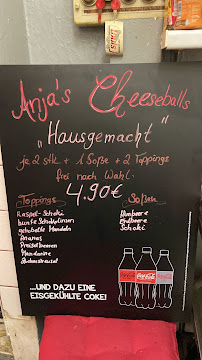 Anja's Cheeseballs
„Hausgemacht"
je 2 stk + 1 Soße + 2 Toppings
frei nach Wahl
4.90€
Toppings
Raspel-Schoki
bunte Schokolinsen
gehobelte Mandeln
Ananas
Preiselbeeren
Mandarine
Soßen
Himbeere
Erdbeere
Schoki
...UND DAZU EINE
EISGEKÜHLTE COKE!